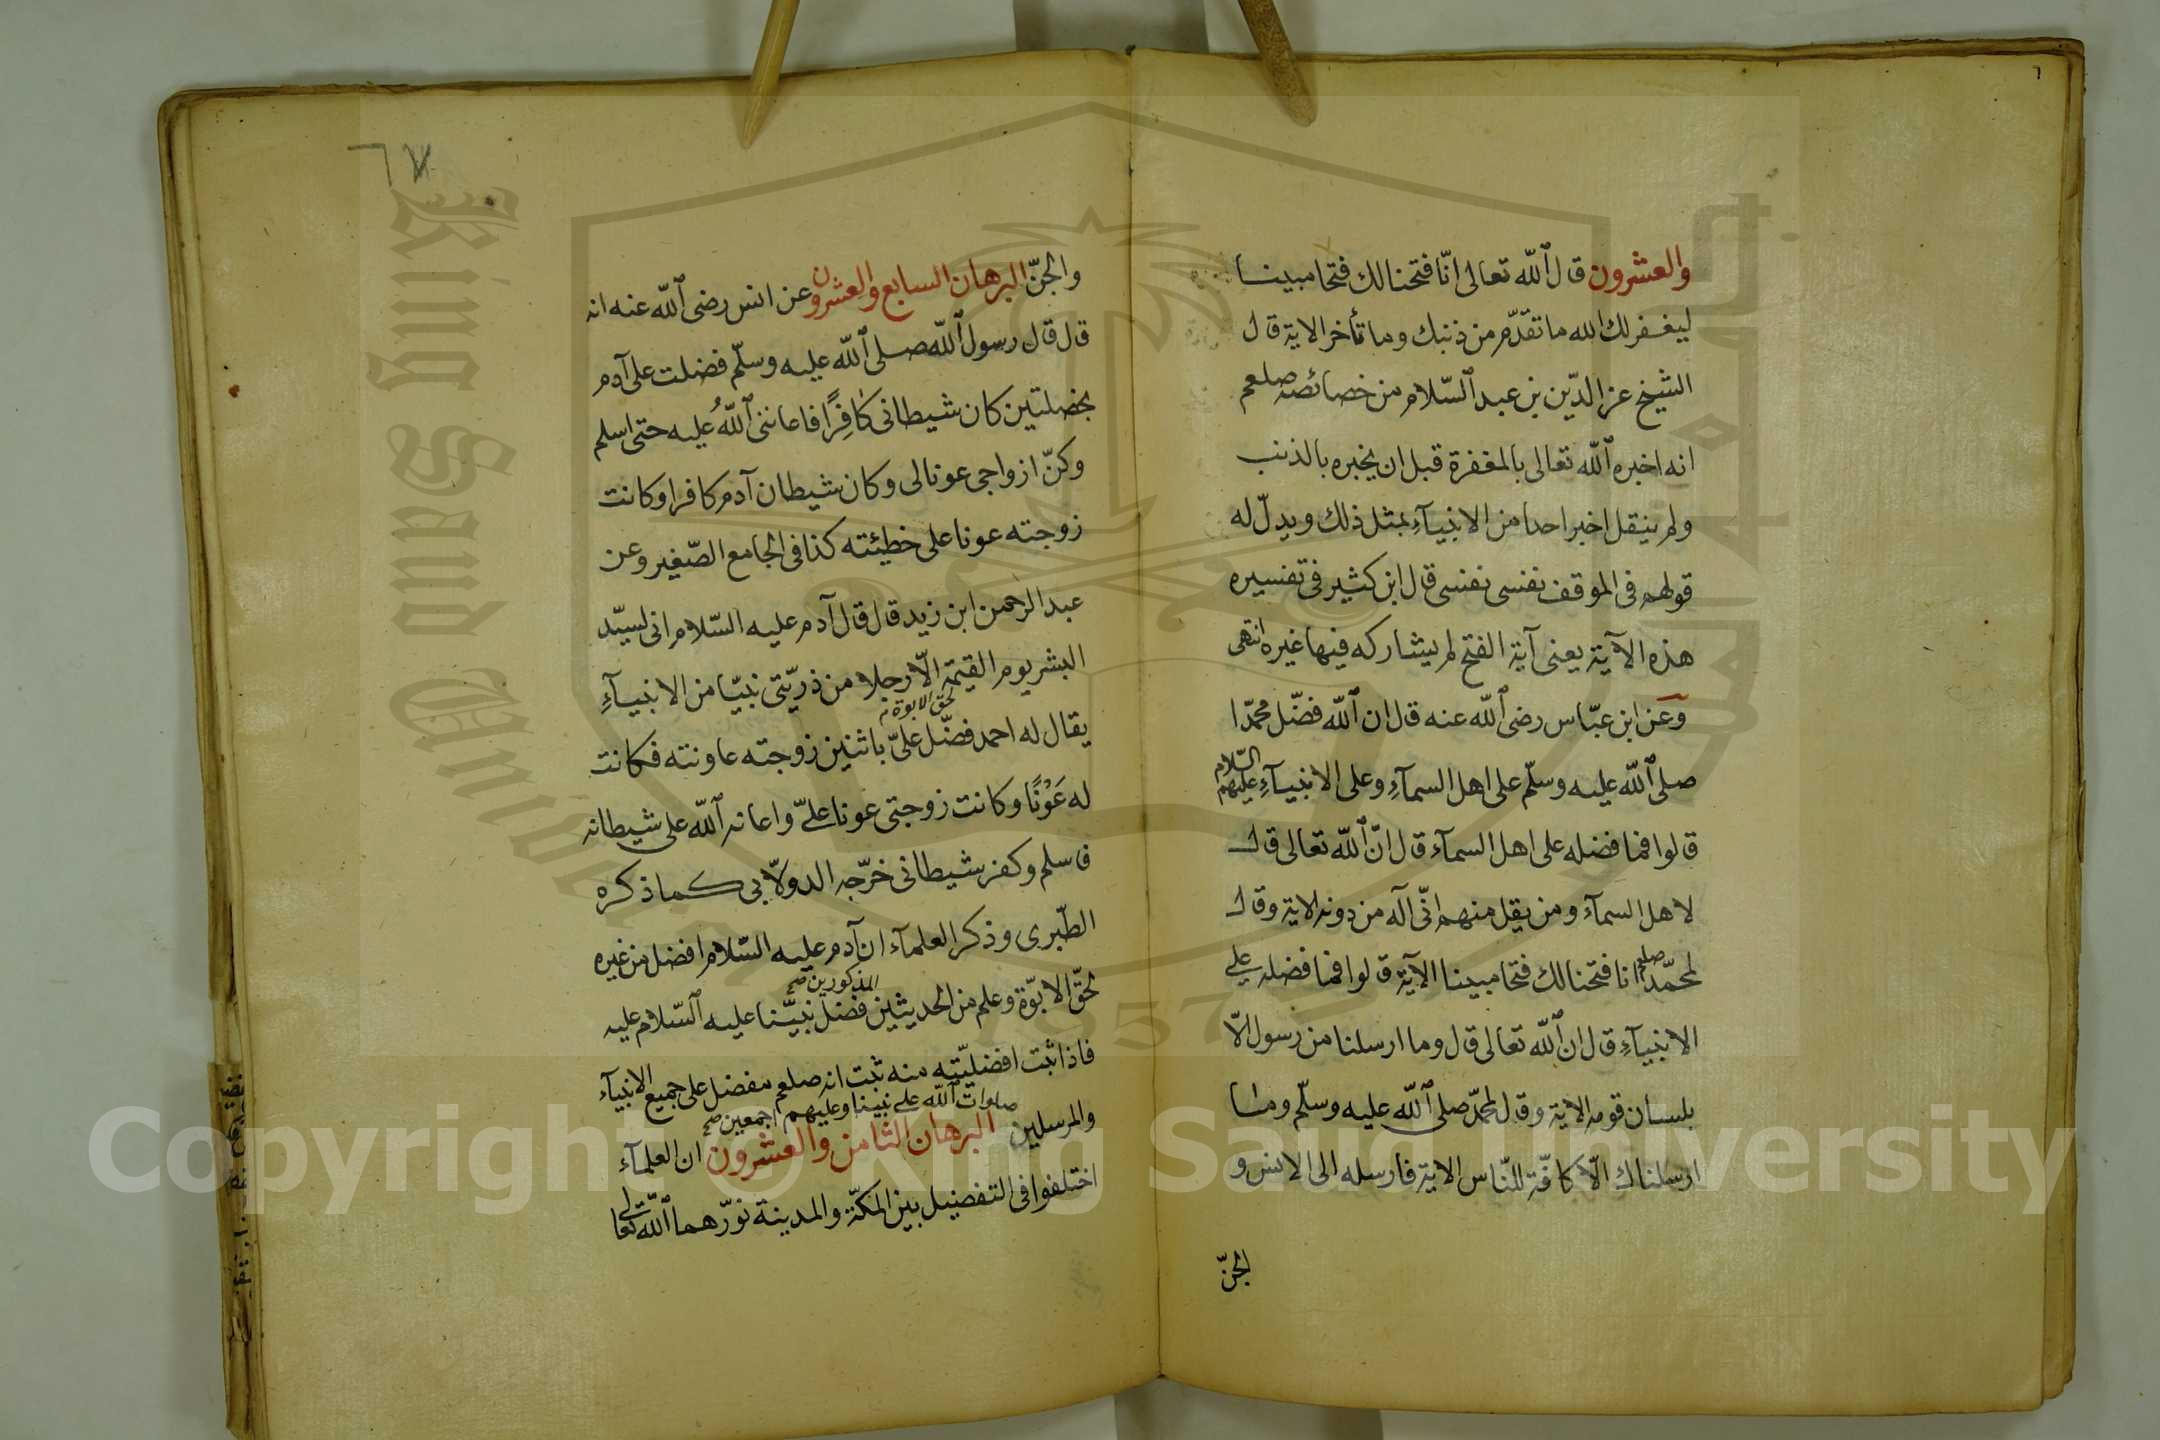 ٦
والعشرون قال الله تعالى انّا فتحنا لك فتحا مبينا
ليغفر لك الله ما تقدّم من ذنبك وما تأخر الاية قال
الشيخ عز الدّين بن عبد السّلام من خصائصه صلعم
انه اخبره الله تعالى بالمغفرة قبل ان يخبره بالذنب
ولم ينقل اخبر احدا من الانبيآء بمثل ذلك ويدلّ له
قولهم فى الموقف نفسى نفسى قال ابن كثير فى تفسيره
هذه الآية يعنى آية الفتح لم يشاركه فيها غيره انتهى
وعن ابن عبّاس رضى الله عنه قال ان الله فضّل محمّدا
صلى الله عليه وسلّم على اهل السمآء وعلى الانبيآء عليهم السّلام
قالوا فما فضله على اهل السمآء قال انّ الله تعالى قال
لاهل السمآء ومن يقل منهم انّى اله من دونه الاية وقال
لمحمّد صلعم انا فتحنا لك فتحا مبينا الآية قالوا فما فضله على
الانبيآء قال ان الله تعالى قال وما ارسلنا من رسول الّا
بلسان قومه الاية وقال لمحمّد صلى الله عليه وسلّم وما
ارسلناك الّا كافّة للنّاس الاية فارسله الى الانس و
الجنّ
٧
والجنّ البرهان السابع والعشرون عن انس رضى الله عنه انه
قال قال رسول الله صلى الله عليه وسلّم فضلت على آدم
بخصلتين كان شيطانى كافِرًا فاعاننى اللهُ عليه حتى اسلم
وكنّ ازواجى عونا لى وكان شيطان آدم كافرا وكانت
زوجته عونا على خطيئته كذا فى الجامع الصّغير وعن
عبد الرحمن ابن زيد قال قال آدم عليه السّلام انى لسيّد
البشر يوم القيمة الّا رجلا من ذريّتى نبيّا من الانبيآءِ
لحق الابوة
يقال له احمد فضّل علىّ باثنين زوجته عاونته فكانت
له عَوْنًا وكانت زوجتى عونا علىّ واعانه الله على شيطانه
فاسلم وكفر شيطانى خرّجه الدولابى كما ذكره
الطّبرى وذكر العلمآء ان آدم عليه السّلام افضل من غيره
المذكورين صح
لحقّ الابوّة وعلم من الحديثين فضل نبيّنا عليه السّلام عليه
فاذا ثبت افضليّته منه ثبت انه صلعم مفضل على جميع الانبيآء
صلوات الله على نبينا وعليهم اجمعين صح
والمرسلين البرهان الثامن والعشرون ان العلمآء
اختلفوا فى التفضيل بين المكّة والمدينة نوّرهما الله تعالى
King Saud University
1957
Copyright © King Saud University